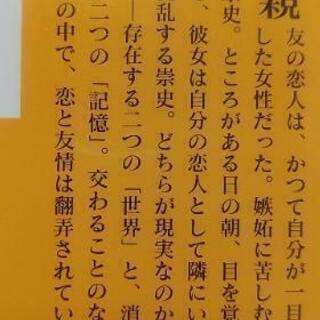 親友の恋人は、かつて自分が一目
した女性だった。嫉妬に苦しむ
崇史。ところがある日の朝、目を覚
、彼女は自分の恋人として隣にい
乱する崇史。どちらが現実なのか
―存在する二つの「世界」と、消
二つの「記憶」。交わることのな
の中で、恋と友情は翻弄されてい